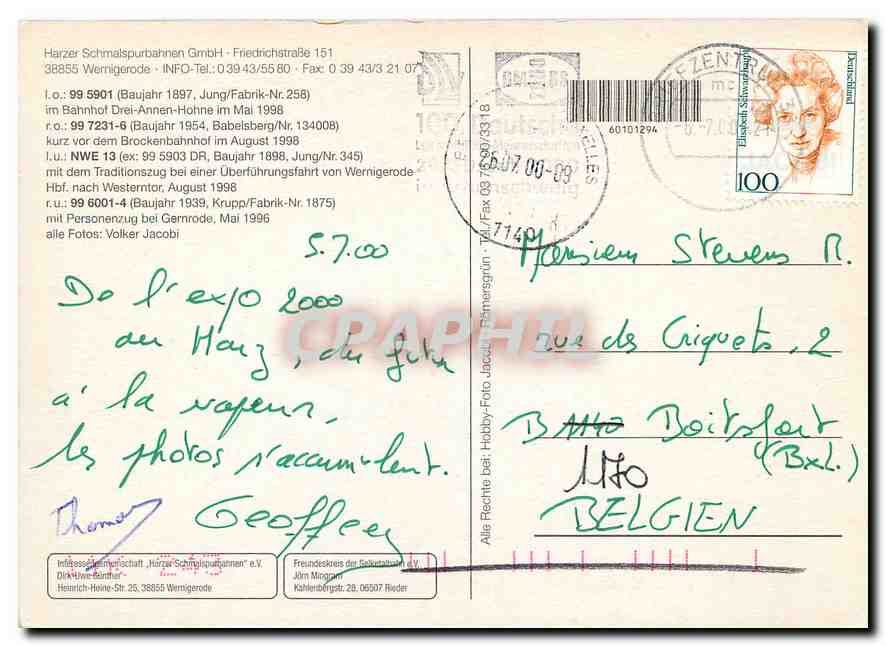 Harzer Schmalspurbahnen GmbH · Friedrichstraße 151
38855 Wernigerode · INFO-Tel.: 0 39 43/55 80 · Fax: 0 39 43/3 21 07
l. o.: 99 5901 (Baujahr 1897, Jung/Fabrik-Nr. 258)
im Bahnhof Drei-Annen-Hohne im Mai 1998
r. o.: 99 7231-6 (Baujahr 1954, Babelsberg/Nr. 134008)
kurz vor dem Brockenbahnhof im August 1998
l. u.: NWE 13 (ex: 99 5903 DR, Baujahr 1898, Jung/Nr. 345)
mit dem Traditionszug bei einer Überführungsfahrt von Wernigerode
Hbf. nach Westerntor, August 1998
r. u.: 99 6001-4 (Baujahr 1939, Krupp/Fabrik-Nr. 1875)
mit Personenzug bei Gernrode, Mai 1996
alle Fotos: Volker Jacobi
5.7.00
De l'expo 2000
au Harz, du futur
à la vapeur,
les photos s'accumulent.
Geoffrey
Thomas
Interessengemeinschaft „Harzer Schmalspurbahnen“ e.V.
Dirk-Uwe Günther
Heinrich-Heine-Str. 25, 38855 Wernigerode
Freundeskreis der Selketalbahn e.V.
Jörn Mingram
Kahlenbergstr. 28, 06507 Rieder
Alle Rechte bei: Hobby-Foto Jacobi · Römersgrün · Tel./Fax 03 76 00/3318
60101294
6.07.00-09
1140
Deutschland
Elisabeth Schwarzhaupt
100
Monsieur Stevens R.
rue des Criquets, 2
B 1140 Boitsfort
(Bxl.)
1170
BELGIEN
CPAPHIL